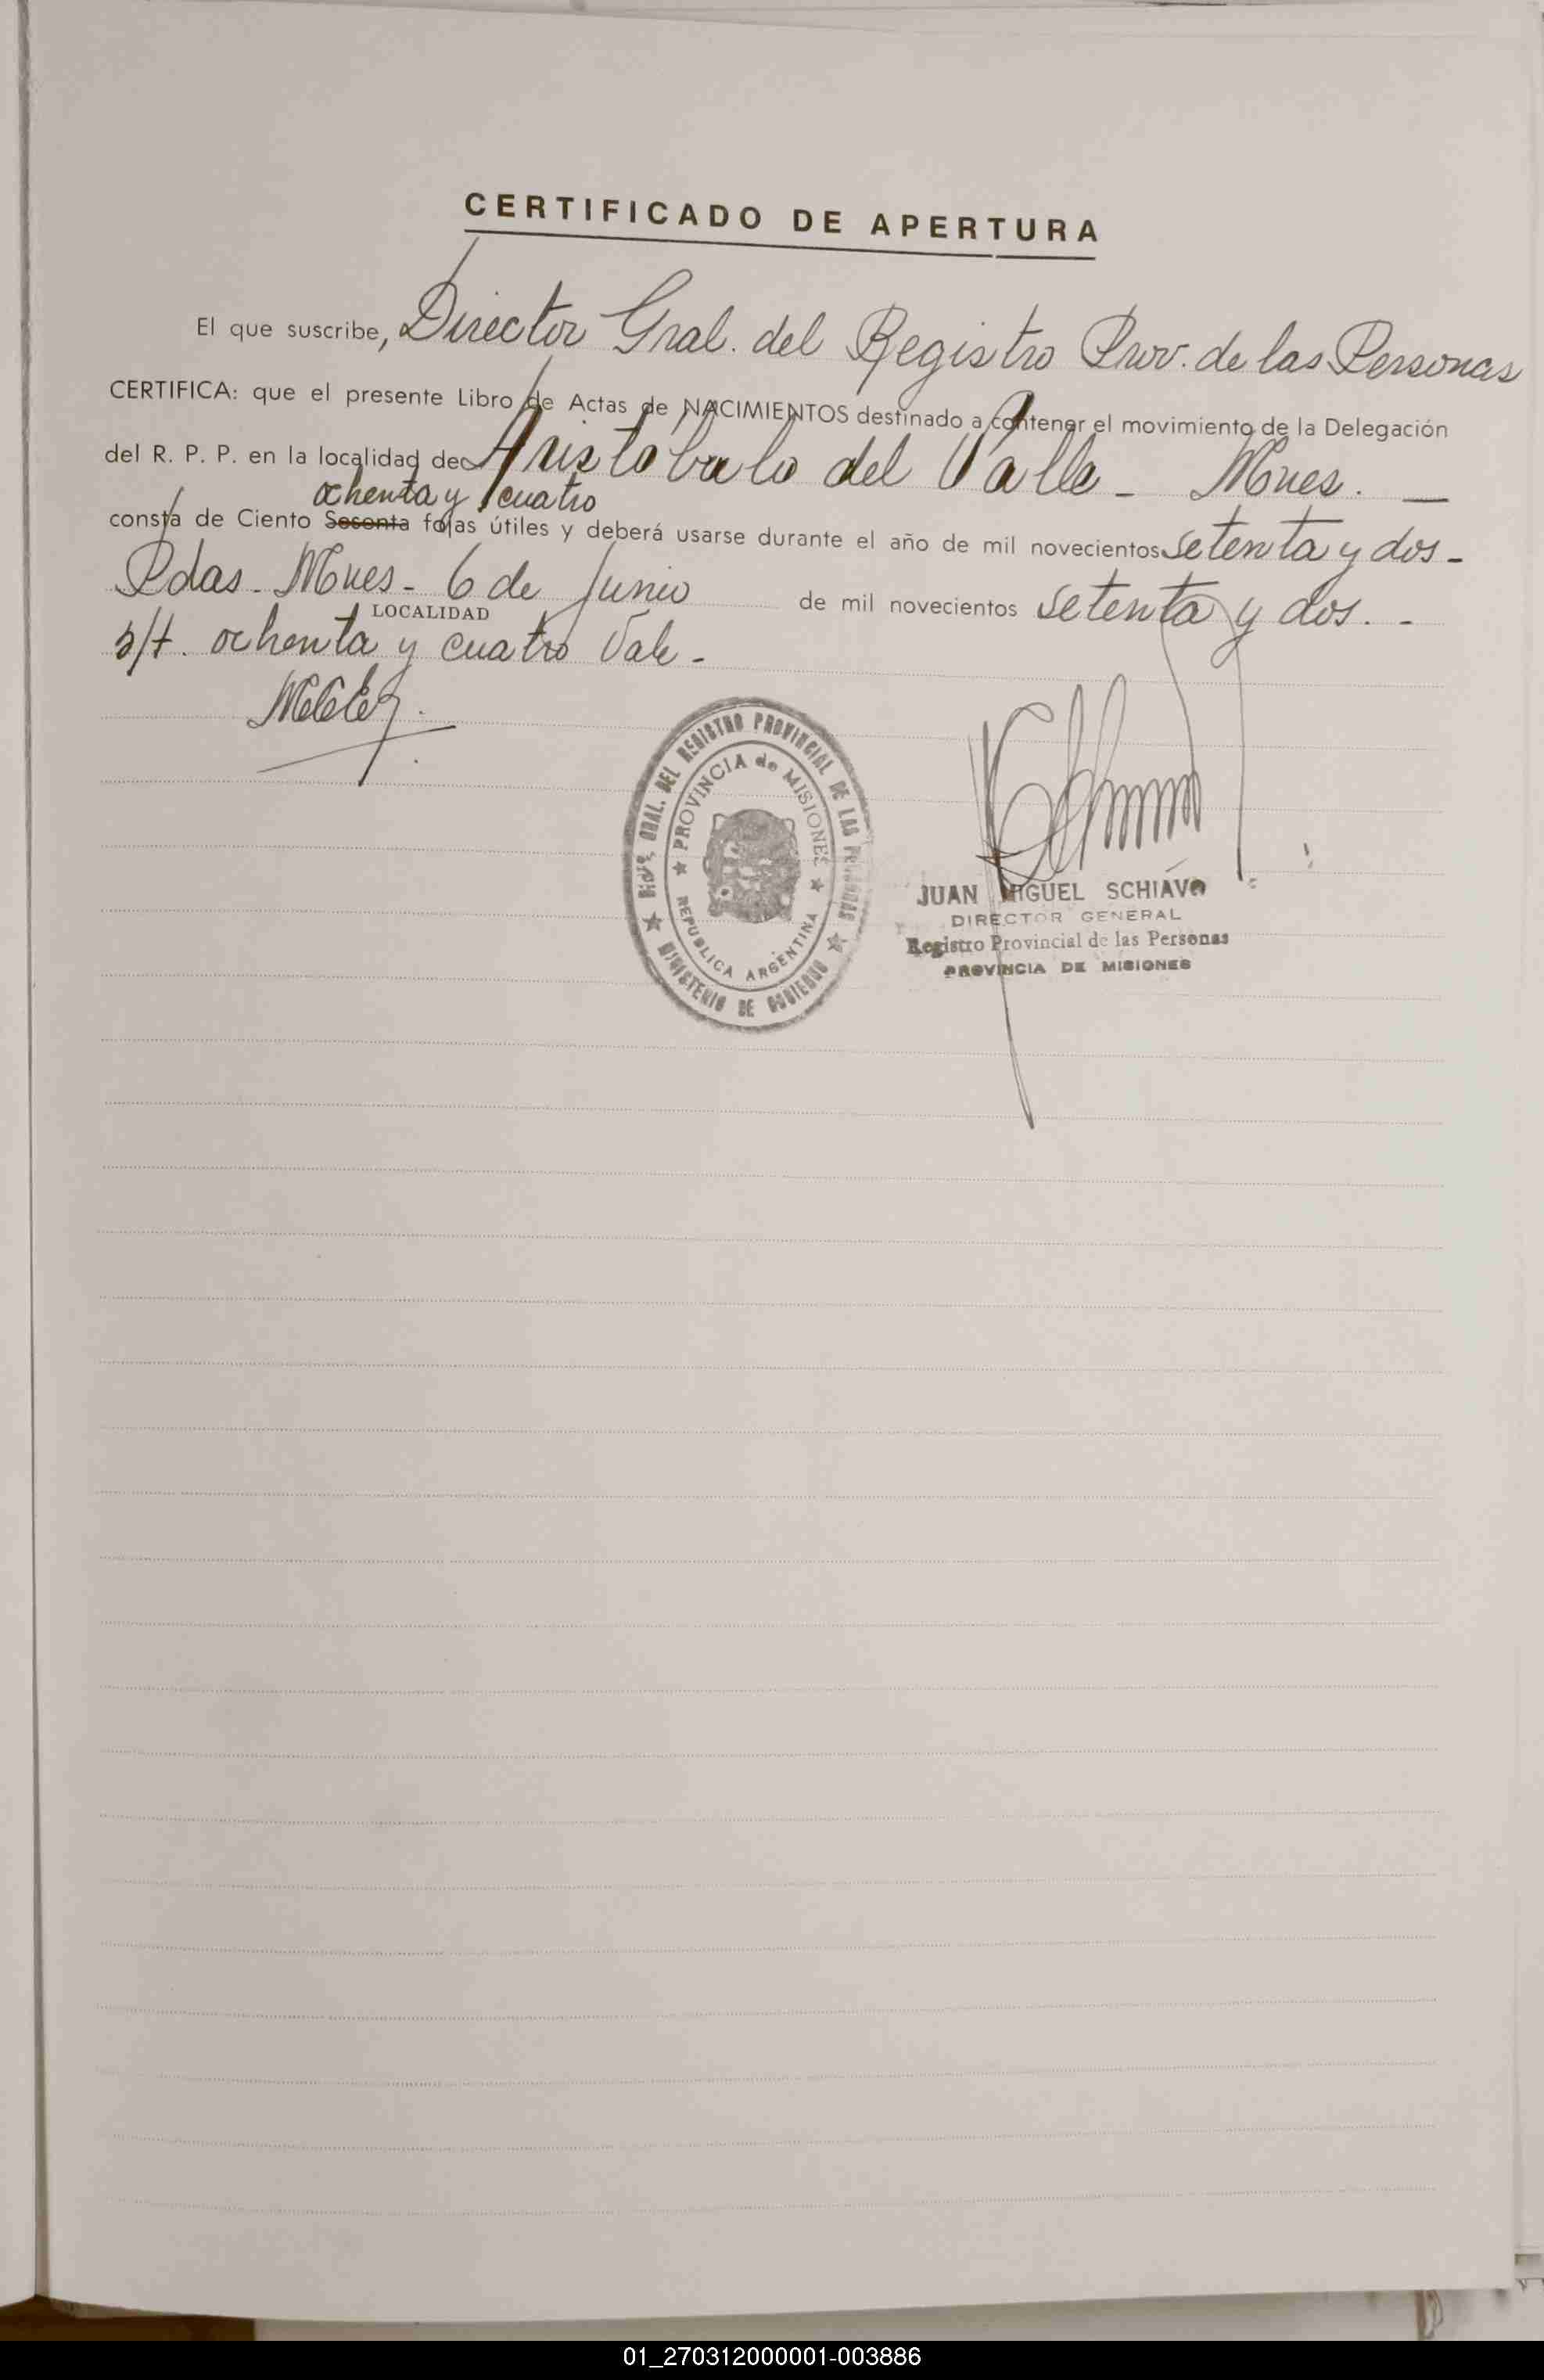 CERTIFICADO DE APERTURA
El que suscribe, Director Gral. del Registro Prov. de las Personas
CERTIFICA: que el presente Libro de Actas de NACIMIENTOS destinado a contener el movimiento de la Delegación
del R. P. P. en la localidad de Aristobulo del Valle - Mnes. —
ochenta y cuatro
consta de Ciento Sesenta fojas útiles y deberá usarse durante el año de mil novecientos setenta y dos -
Pdas. Mnes - 6 de Junio de mil novecientos setenta y dos. -
LOCALIDAD
s/t. ochenta y cuatro Vale -
GRAL. DEL REGISTRO PROVINCIAL DE LAS PERSONAS
MINISTERIO DE GOBIERNO
PROVINCIA de MISIONES
REPUBLICA ARGENTINA
JUAN MIGUEL SCHIAVO
DIRECTOR GENERAL
Registro Provincial de las Personas
PROVINCIA DE MISIONES
01_270312000001-003886